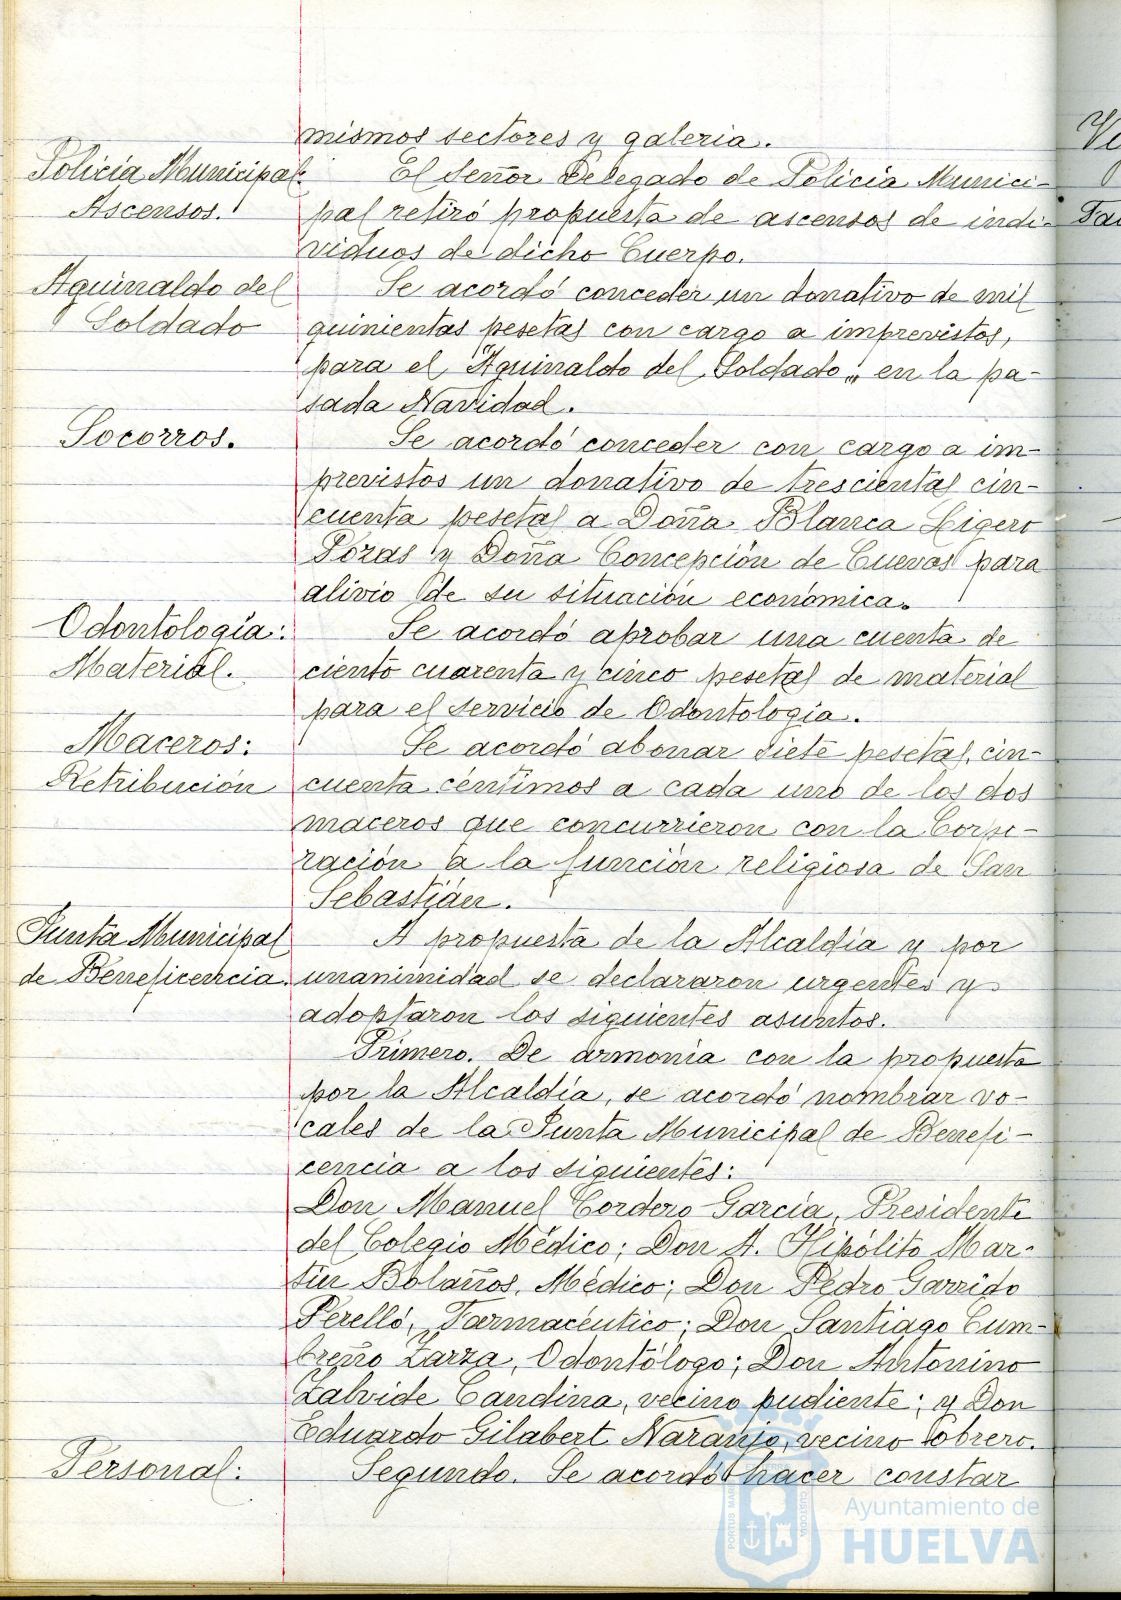 mismos sectores y galeria.
Policía Municipal:
Ascensos.
El Señor Delegado de Policía Munici-
pal retiró propuesta de ascensos de indi-
viduos de dicho Cuerpo.
Aguinaldo del
Soldado
Se acordó conceder un donativo de mil
quinientas pesetas con cargo a imprevistos,
para el "Aguinaldo del Soldado", en la pa-
sada Navidad.
Socorros.
Se acordó conceder con cargo a im-
previstos un donativo de trescientas cin-
cuenta pesetas a Doña Blanca Ligero
Pozas y Doña Concepción de Cuevas para
alivio de su situación económica.
Odontología:
Material.
Se acordó aprobar una cuenta de
ciento cuarenta y cinco pesetas de material
para el servicio de Odontología.
Maceros:
Retribución
Se acordó abonar siete pesetas, cin-
cuenta céntimos a cada uno de los dos
maceros que concurrieron con la Corpo-
ración a la función religiosa de San
Sebastián.
Junta Municipal
de Beneficencia.
A propuesta de la Alcaldía y por
unanimidad se declararon urgentes y
adoptaron los siguientes asuntos.
Primero. De armonía con la propuesta
por la Alcaldía, se acordó nombrar vo-
cales de la Junta Municipal de Benefi-
cencia a los siguientes:
Don Manuel Cordero García, Presidente
del Colegio Médico; Don A. Hipólito Mar-
tin Bolaños, Médico; Don Pedro Garrido
Perelló, Farmacéutico; Don Santiago Cum-
breño Zarza, Odontólogo; Don Antonino
Zalvide Candina, vecino pudiente; y Don
Eduardo Gilabert Naranjo, vecino obrero.
Personal:
Segundo. Se acordó hacer constar
Ayuntamiento de
HUELVA